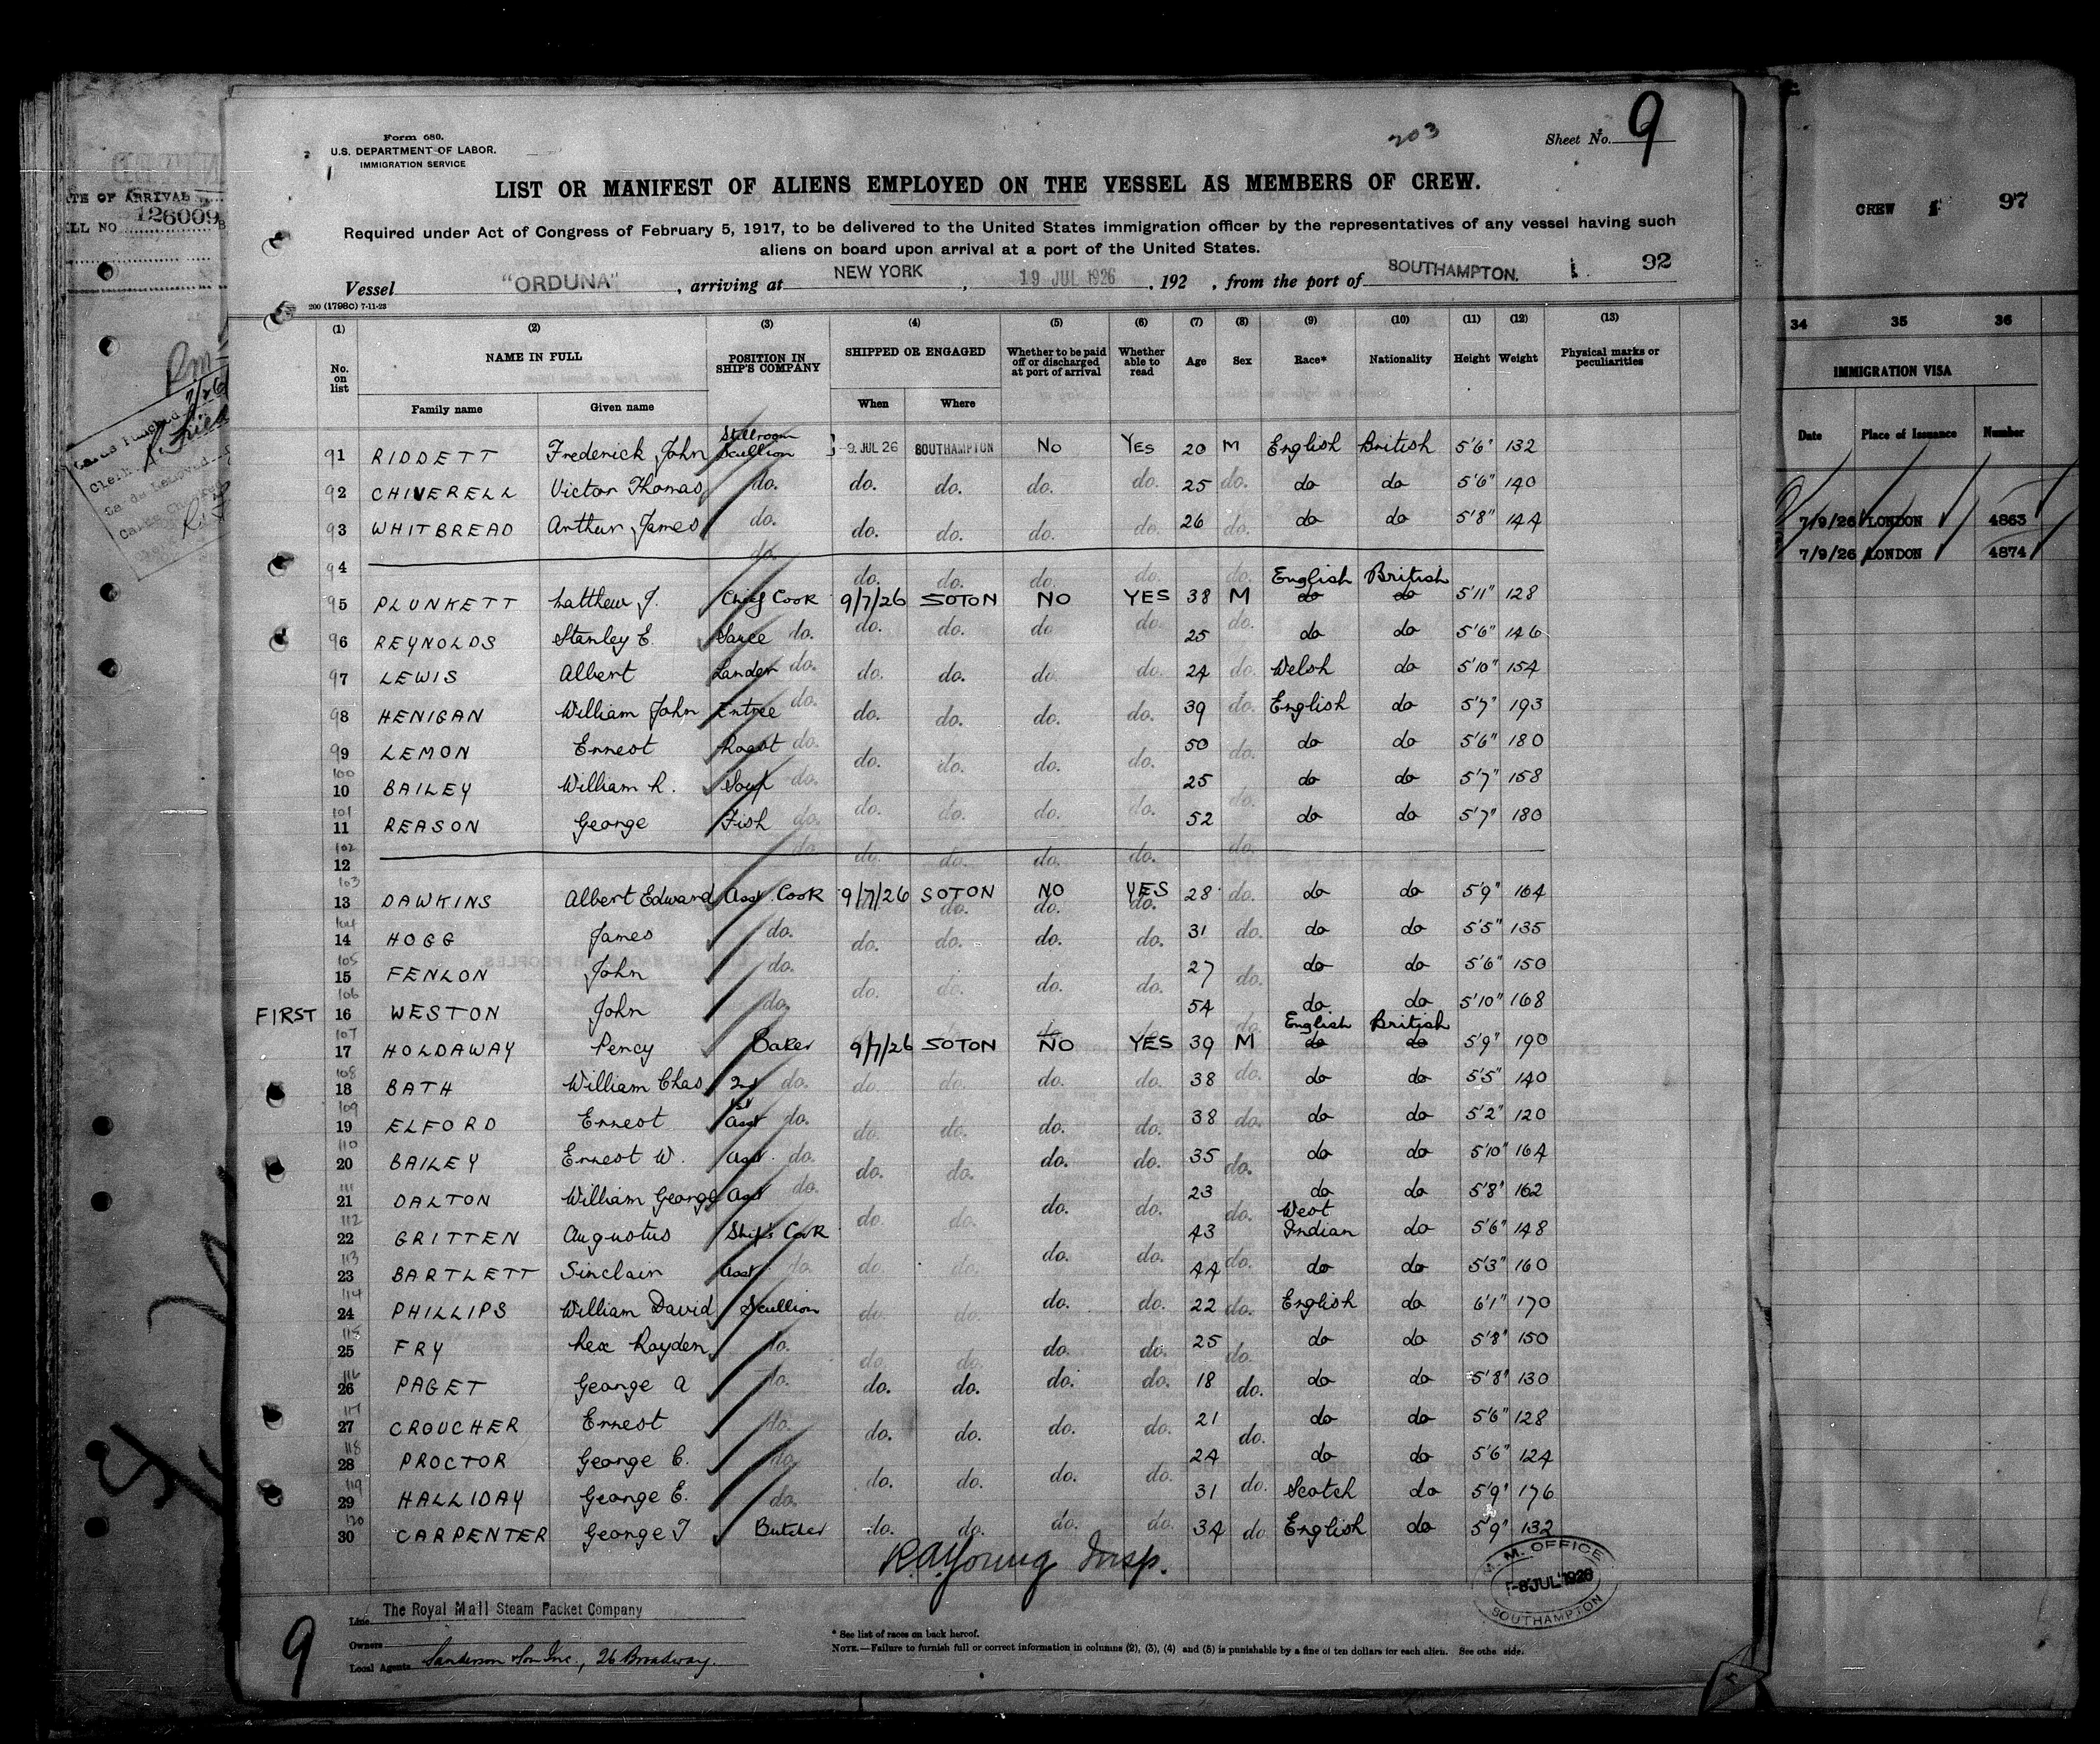 Form 680.
U.S. DEPARTMENT OF LABOR.
IMMIGRATION SERVICE
203
Sheet No. 9
LIST OR MANIFEST OF ALIENS EMPLOYED ON THE VESSEL AS MEMBERS OF CREW.
Required under Act of Congress of February 5, 1917, to be delivered to the United States immigration officer by the representatives of any vessel having such
aliens on board upon arrival at a port of the United States.
Vessel "ORDUNA", arriving at NEW YORK, 19 JUL 1926, 192 , from the port of SOUTHAMPTON. 92
200 (1798c) 7-11-23
(1) (2) (3) (4) (5) (6) (7) (8) (9) (10) (11) (12) (13)
No. on list NAME IN FULL POSITION IN SHIP'S COMPANY SHIPPED OR ENGAGED Whether to be paid off or discharged at port of arrival Whether able to read Age Sex Race* Nationality Height Weight Physical marks or peculiarities
Family name Given name When Where
91 RIDDETT Frederick John Stillroom Scullion 9 JUL 26 SOUTHAMPTON No YES 20 M English British 5'6" 132
92 CHIVERELL Victor Thomas do. do. do. do. do. 25 do. do do 5'6" 140
93 WHITBREAD Arthur James do. do. do. do. do. 26 do. do do 5'8" 144
94 do. do. do. do. do. do.
95 PLUNKETT Matthew J. Chief Cook 9/7/26 SOTON NO YES 38 M English British do do 5'11" 128
96 REYNOLDS Stanley E. Sauce do. do. do. do do. 25 do. do do 5'6" 146
97 LEWIS Albert Larder do. do. do. do. do. 24 do. Welsh do 5'10" 154
98 HENIGAN William John Entree do. do. do. do. do. 39 do. English do 5'7" 193
99 LEMON Ernest Roast do. do. do. do. do. 50 do. do do 5'6" 180
100 10 BAILEY William R. Soup do. do. do. do. do. 25 do. do do 5'7" 158
101 11 REASON George Fish do. do. do. do. do. 52 do do 5'7" 180
102 12 do. do. do. do. do. do.
103 13 DAWKINS Albert Edward Asst. Cook 9/7/26 SOTON NO YES 28 do. do do 5'9" 164
104 14 HOGG James do. do. do. do. do. 31 do. do do 5'5" 135
105 15 FENLON John do. do. do. do. do. 27 do. do do 5'6" 150
FIRST 106 16 WESTON John do. 54 do do 5'10" 168
107 17 HOLDAWAY Percy Baker 9/7/26 SOTON NO YES 39 M English British do do 5'9" 190
108 18 BATH William Chas 2nd do. do. do. do. do. 38 do. do do 5'5" 140
109 19 ELFORD Ernest 1st Asst do. do. do. do. do. 38 do. do do 5'2" 120
110 20 BAILEY Ernest W. Asst. do. do. do. do. do. 35 do. do do 5'10" 164
111 21 DALTON William George Asst do. do. do. do. do. 23 do. do do 5'8" 162
112 22 GRITTEN Augustus Ship's Cook 43 West Indian do 5'6" 148
113 23 BARTLETT Sinclair Asst. do. do. do. do. do. 44 do. do do 5'3" 160
114 24 PHILLIPS William David Scullion do. do. do. do. 22 do. English do 6'1" 170
115 25 FRY Rex Rayden do. do. do. do. do. 25 do. do do 5'8" 150
116 26 PAGET George A do. do. do. do. do. 18 do. do do 5'8" 130
117 27 CROUCHER Ernest do. do. do. do. do. 21 do. do do 5'6" 128
118 28 PROCTOR George C. do. do. do. do. do. 24 do do 5'6" 124
119 29 HALLIDAY George E. do. 31 do. Scotch do 5'9" 176
120 30 CARPENTER George T Butcher do. do. do. do. 34 do English do 5'9" 132
R.A. Young Insp.
M.M. OFFICE
-8 JUL 1926
SOUTHAMPTON
Line The Royal Mail Steam Packet Company
Owners
Local Agents Sanderson & Son Inc., 26 Broadway.
* See list of races on back hereof.
NOTE.—Failure to furnish full or correct information in columns (2), (3), (4) and (5) is punishable by a fine of ten dollars for each alien. See othe side.
9
CREW 97
34 35 36
IMMIGRATION VISA
Date Place of Issuance Number
7/9/26 LONDON 4863
7/9/26 LONDON 4874
TE OF ARRIVAL
126009
LL NO